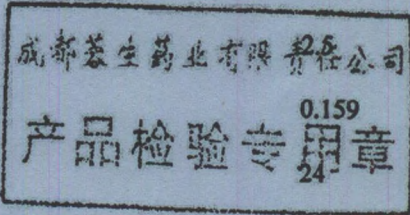 成都蓉生药业有限责任公司
2.5
0.159
产品检验专用章
24